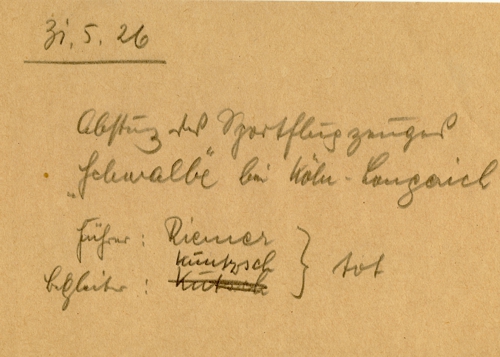 31. 5. 26
Absturz des Sportflugzeuges
„Schwalbe" bei Köln-Longerich
Führer: Riemer
Kuntzsch } tot
Begleiter: Kutsch